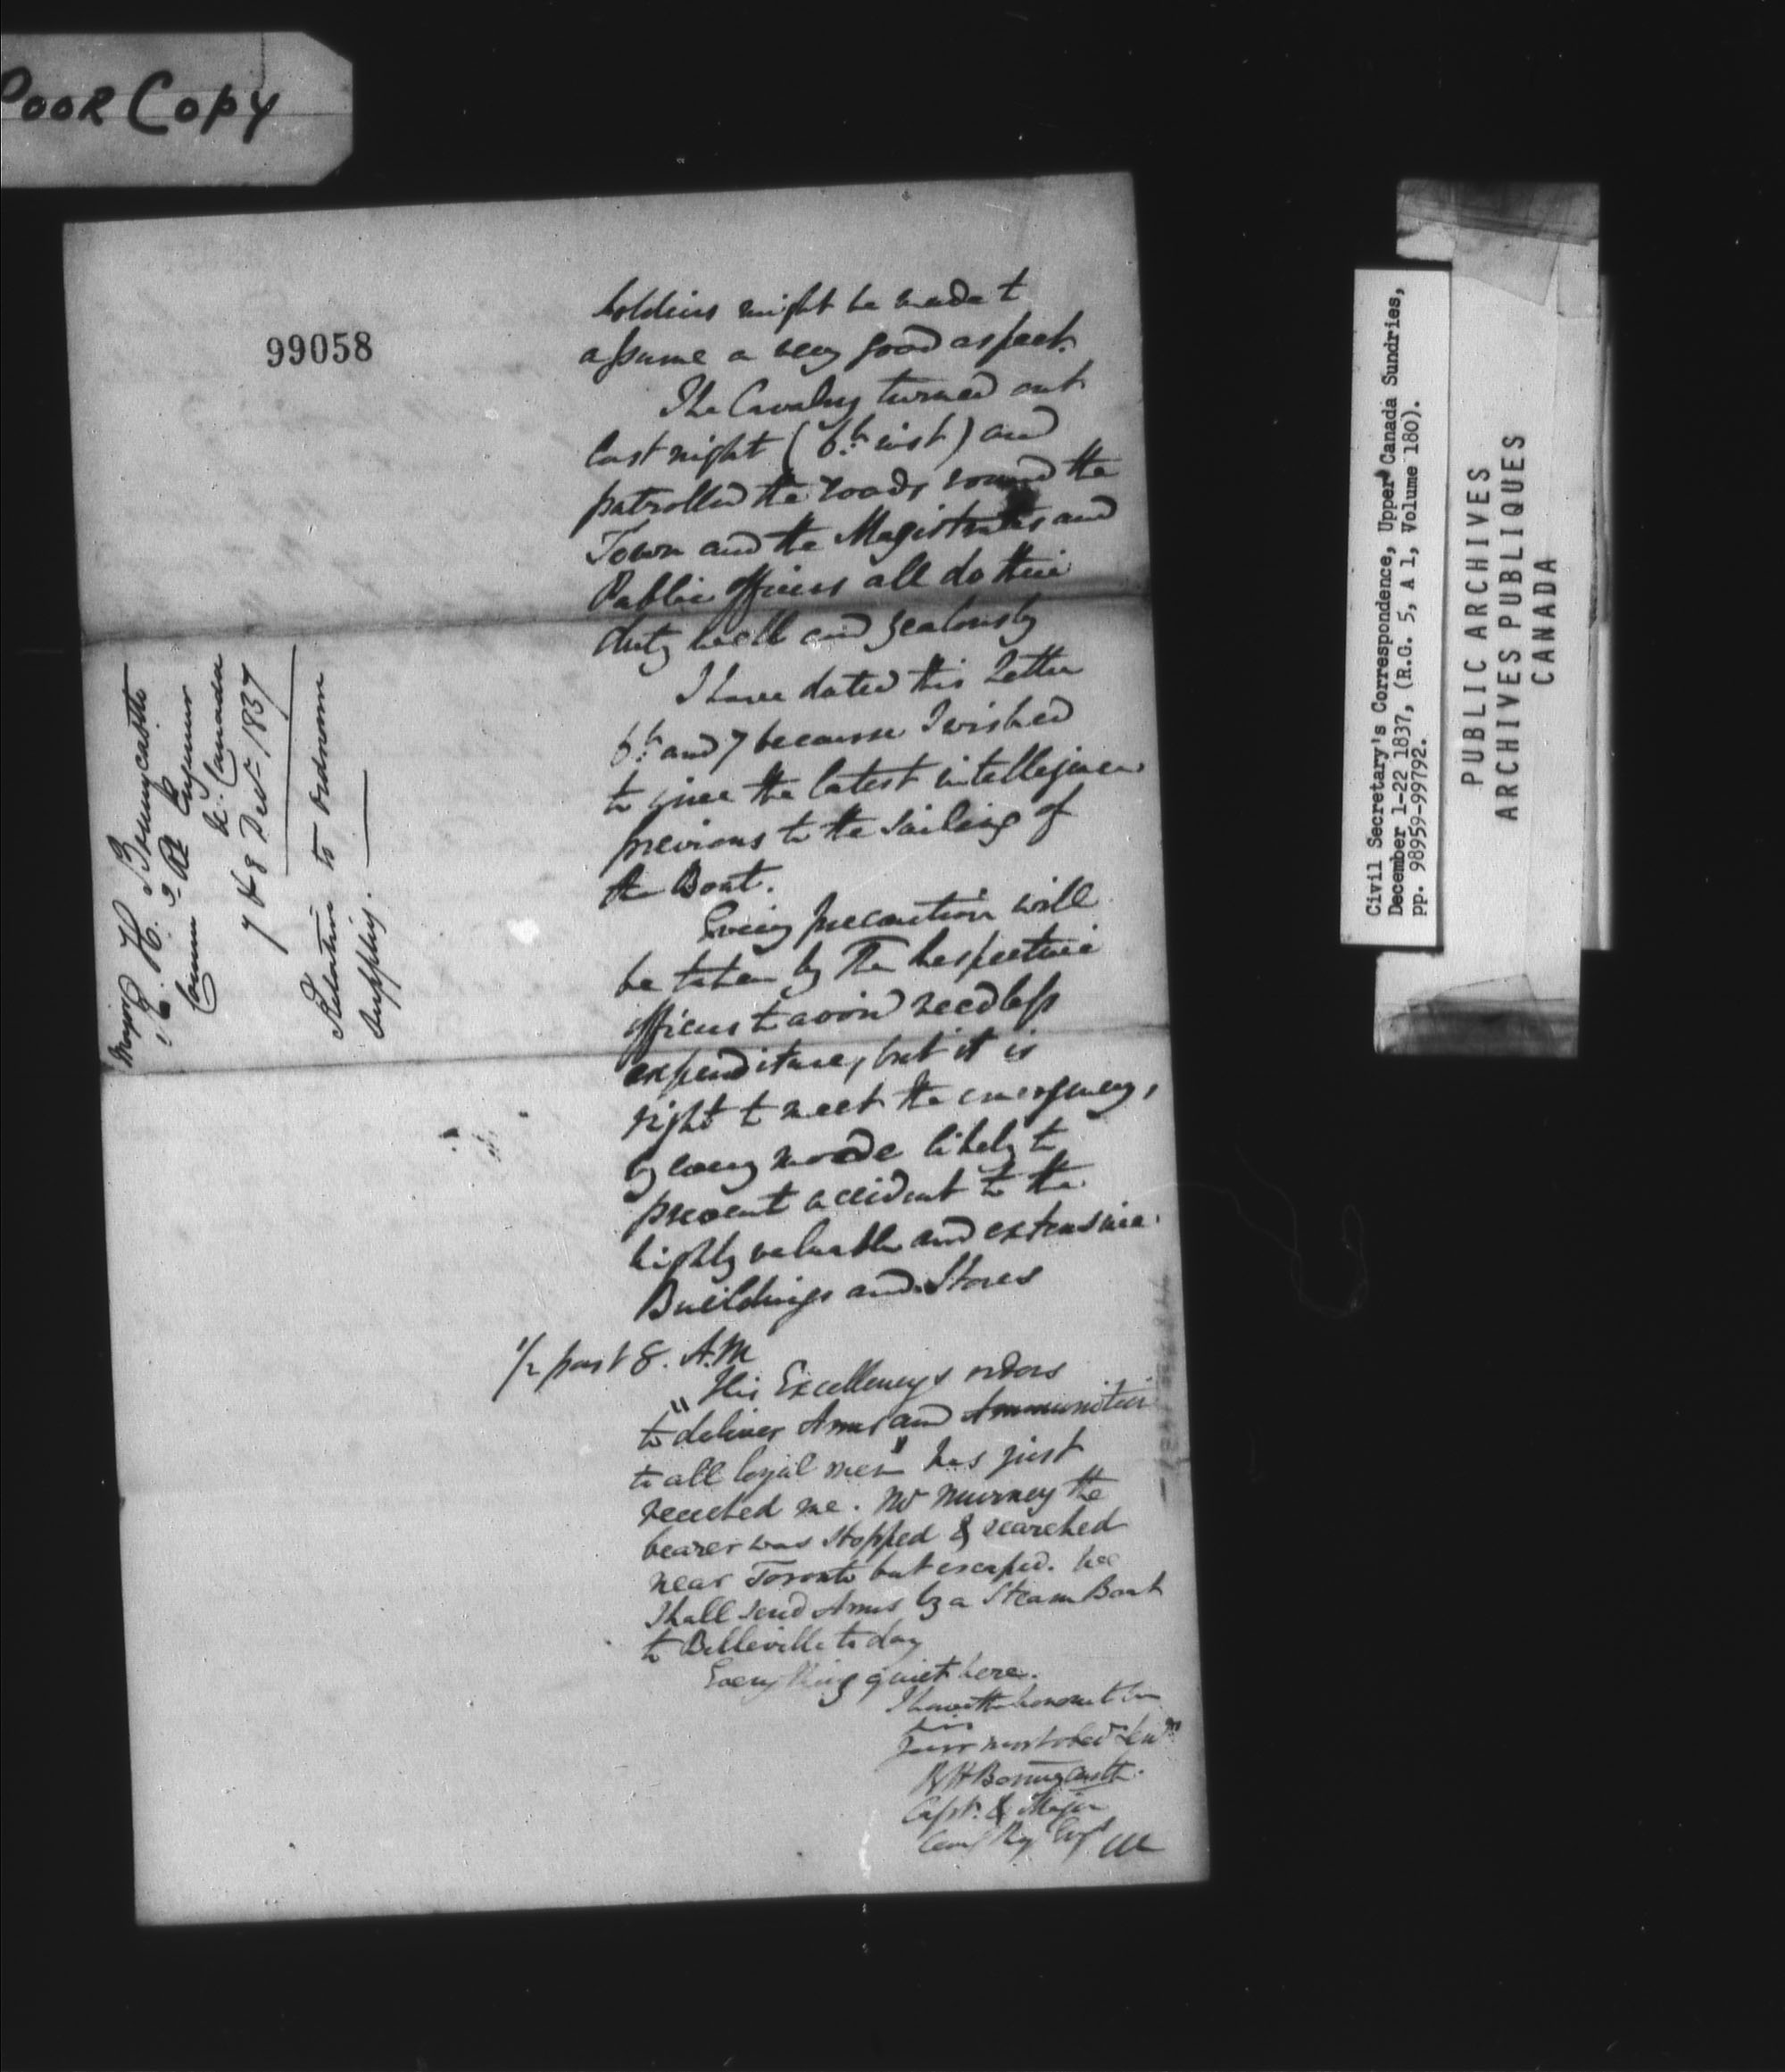 POOR COPY
99058
Soldiers might be made to
assume a very good aspect.
The Cavalry turned out
last night (6th inst) and
patrolled the roads round the
Town and the Magistrates and
Public officers all do their
duty well and zealously
I have dated this Letter
6th and 7 because I wished
to give the latest intelligence
previous to the sailing of
the Boat.
Every precaution will
be taken by The Respective
officers to avoid needless
expenditure, but it is
right to meet the emergency,
by every mode likely to
prevent accident to the
highly valuable and extensive
Buildings and Stores
1/2 past 8. A.M
"His Excellency's orders
to deliver Arms and Ammunition
to all loyal men" has just
reached me. Mr Murney the
bearer was stopped & searched
near Toronto but escaped. We
shall send Arms by a Steam Boat
to Belleville to day
Every thing quiet here.
I have the honour to be
Sir
Your most obed Servt
R H Bonnycastle
Capt. & Major
Comg Ry Engs UC
Major
R. H. Bonnycastle
Comm g Rl Engineer
U. Canada
7 & 8 Decr 1837
Relative to Ordnance
Supplies.
Civil Secretary's Correspondence, Upper Canada Sundries,
December 1-22 1837, (R.G. 5, A 1, Volume 180).
pp. 98959-99792.
PUBLIC ARCHIVES
ARCHIVES PUBLIQUES
CANADA